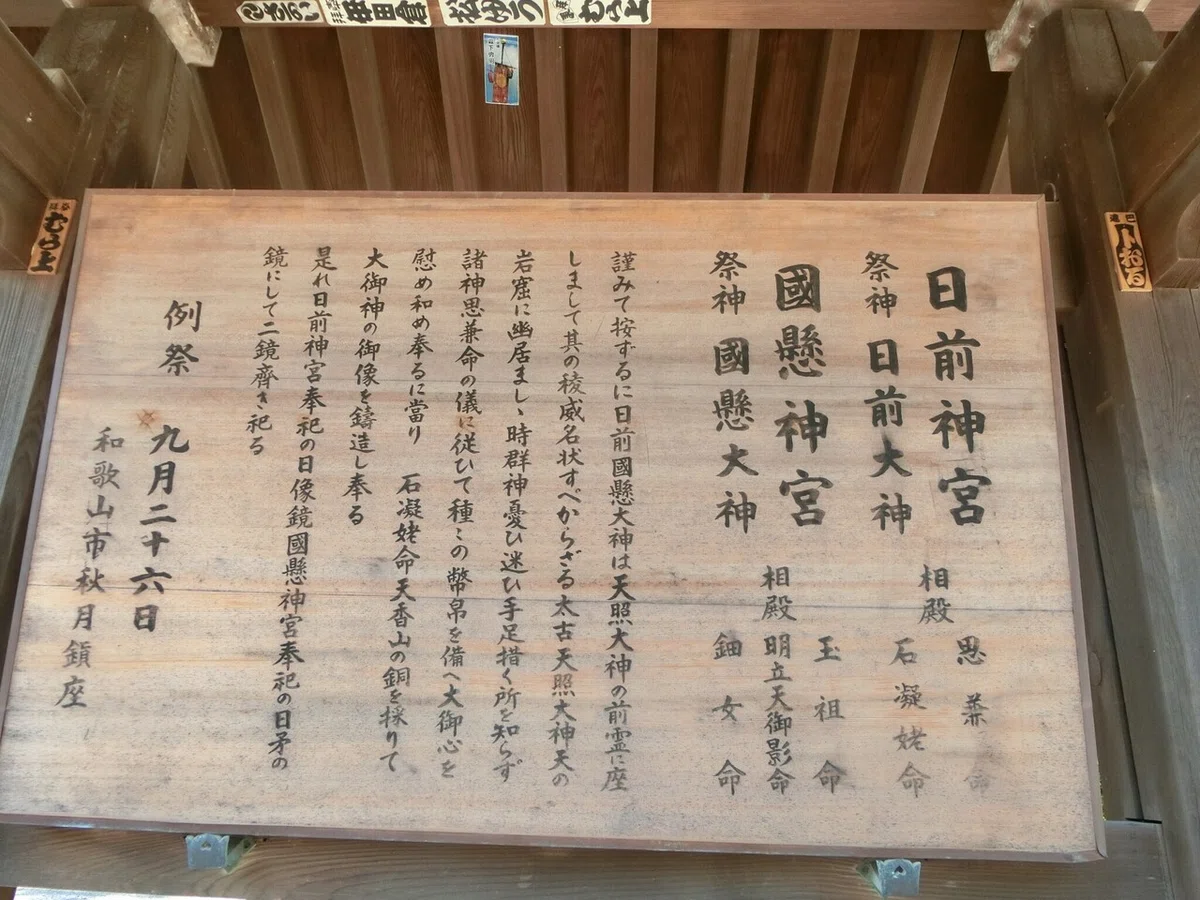 日前神宮
祭神 日前大神
相殿
思兼命
石凝姥命
國懸神宮
祭神 國懸大神
相殿
玉祖命
明立天御影命
鈿女命
謹みて按ずるに日前國懸大神は天照大神の前霊に座
しまして其の稜威名状すべからざる太古天照大神天の
岩窟に幽居ましゝ時群神憂ひ迷ひ手足措く所を知らず
諸神思兼命の儀に従ひて種〻の幣帛を備へ大御心を
慰め和め奉るに當り 石凝姥命天香山の銅を採りて
大御神の御像を鑄造し奉る
是れ日前神宮奉祀の日像鏡國懸神宮奉祀の日矛の
鏡にして二鏡齊き祀る
例祭 九月二十六日
和歌山市秋月鎮座
むら上